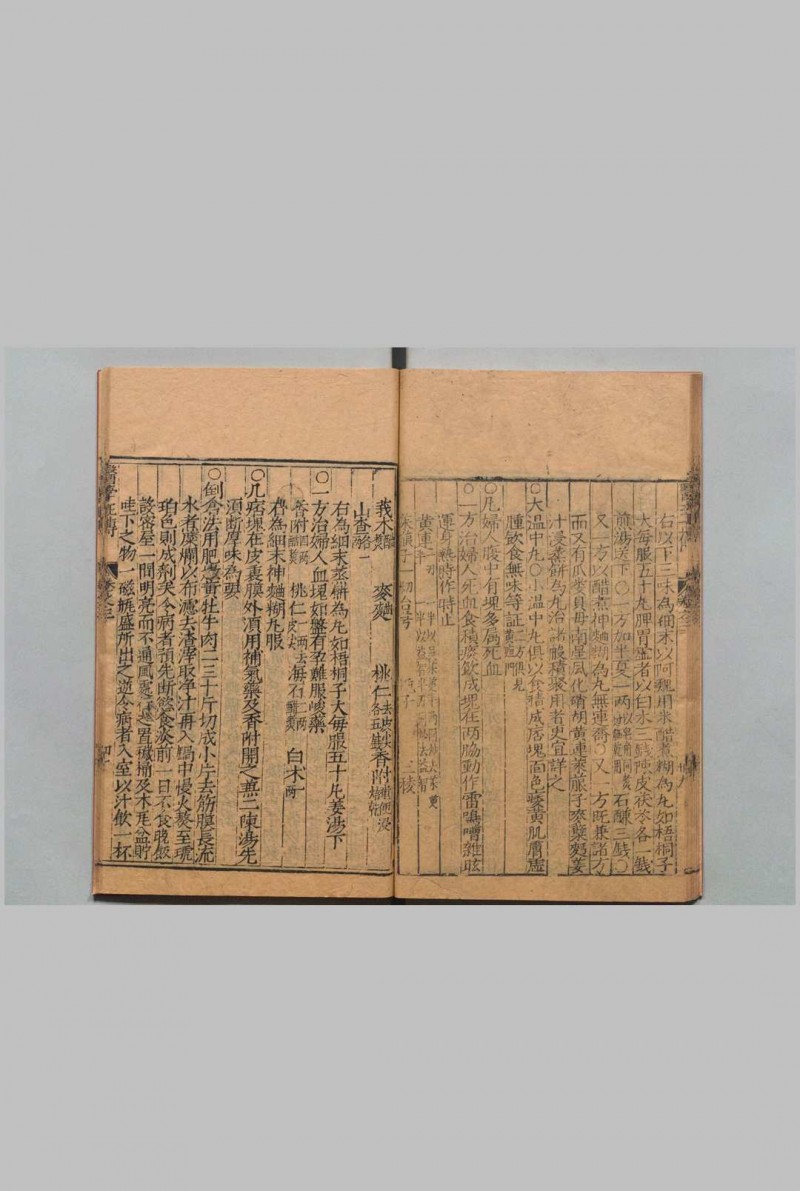 右以下三味為細末以阿魏用米醋煮糊為丸如梧桐子
大每服五十丸脾胃虛者以白朮三錢陳皮茯苓各一錢
煎湯送下○一方加半夏一兩石鹻三錢○
又一方以醋煮神麯糊為丸無連喬○又一方既兼諸方
而又有瓜蔞貝母南星風化硝胡黃連萊菔子麥蘗麯姜
汁浸蒸餅為丸治諸般積聚用者更宜詳之
○大温中丸○小温中丸俱以食積成居塊面色萎黃肌膚尫
腫飲食無味等証二方俱見黃疸門
○凡婦人腹中有塊多属死血
○一方治婦人死血食積痰飲成塊在两脇動作雷鳴嘈雜眩
運身熱時作時止
黃連一兩
三棱
莪术醋煑 麥麯 桃仁去皮尖各五錢香附童便浸焙乾
山查
右為細末蒸餅為丸如梧桐子大每服五十丸姜湯下
○一方治婦人血塊如盤有孕難服峻藥
香附四兩醋煑 桃仁一兩去皮尖海石二兩醋煑 白术一兩
右為細末神麯糊丸服
○凡痞塊在皮裏膜外須用補氣藥及香附開之兼二陳湯先
須断厚味為要
○倒倉法用肥嫩黃牡牛肉二三十斤切成小片去筋膜長流
水煮糜爛以布濾去渣滓取净汁再入鍋中慢火熬至琥
珀色則成劑矣令病者預先断慾食淡前一日不食晚飯
設密室一間明亮而不通風處置穢桶及木瓦盆貯
吐下之物一磁瓶盛所出之逆令病者入室以汁飲一杯
醫學正傳
卷之三